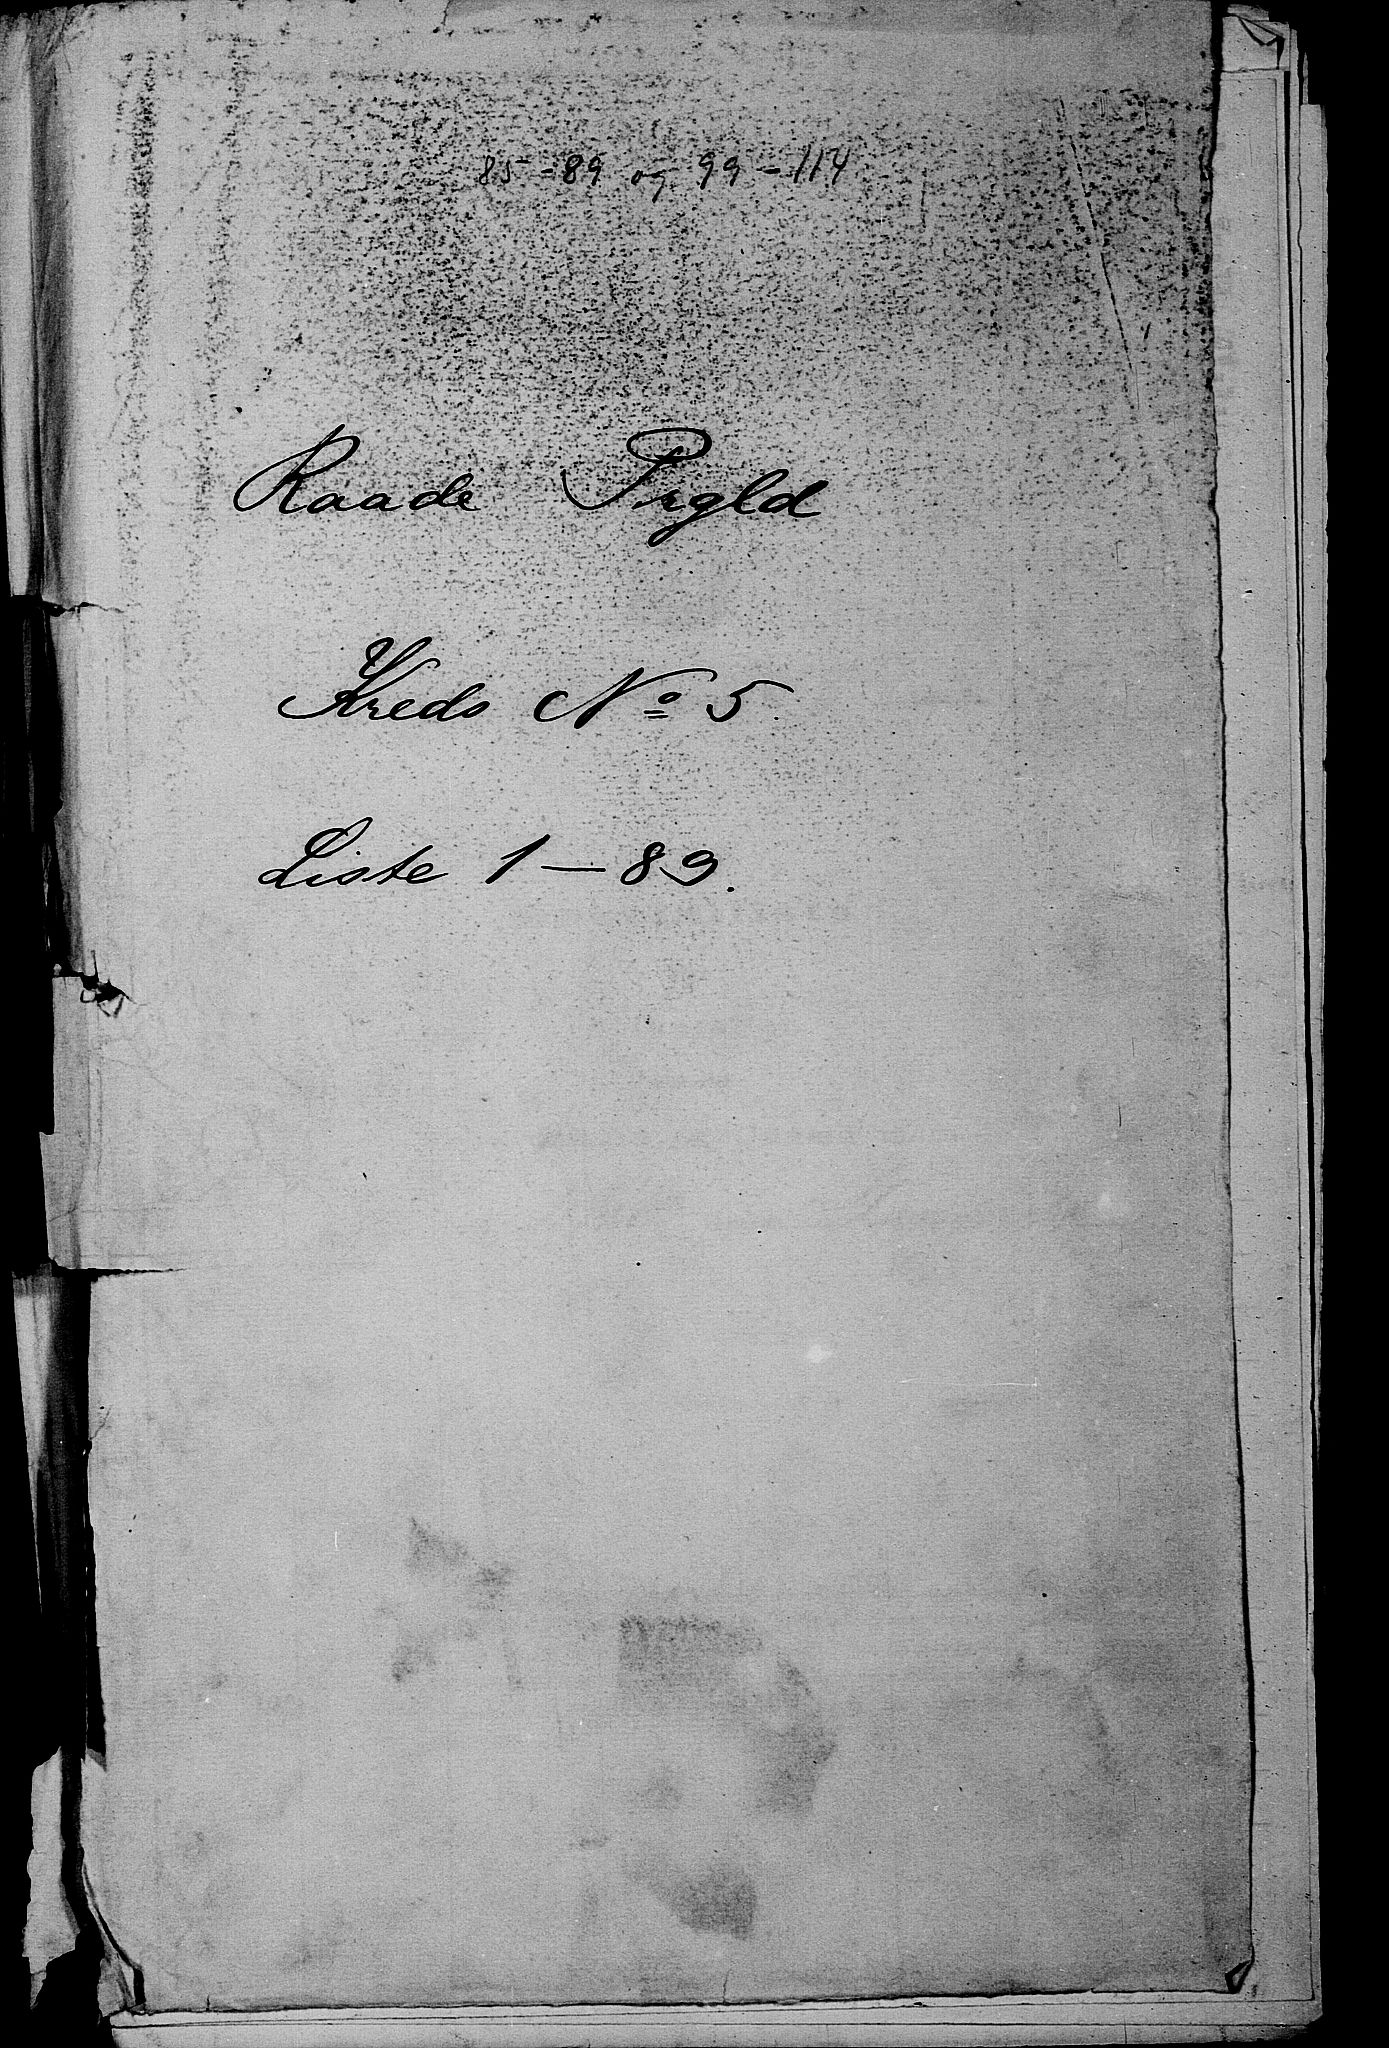 85-89 og 99-114
Raade Prgld
Kreds No 5.
Liste 1-89.